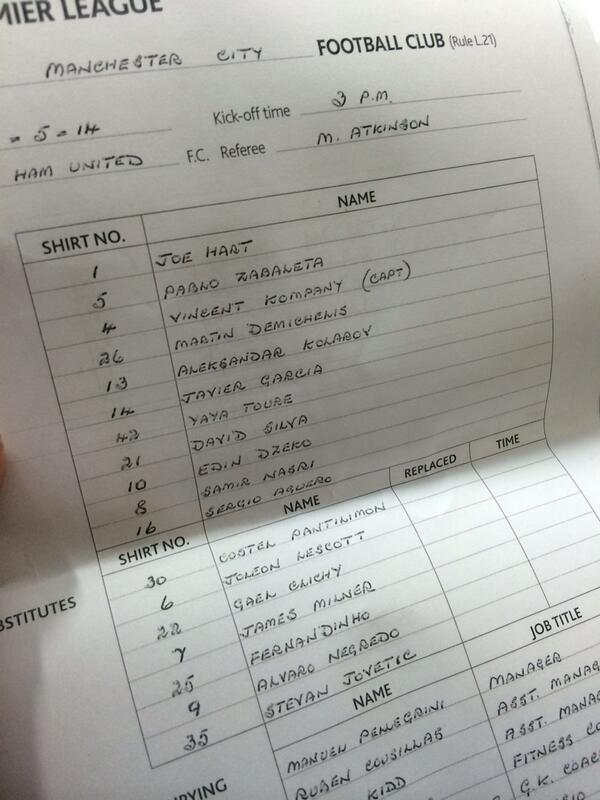 MIER LEAGUE
MANCHESTER CITY FOOTBALL CLUB (Rule L.21)
- 5 - 14 Kick-off time 3 P.M.
HAM UNITED F.C. Referee M. ATKINSON
SHIRT NO. NAME
1 JOE HART
5 PABLO ZABALETA
4 VINCENT KOMPANY (CAPT)
26 MARTIN DEMICHELIS
13 ALEKSANDAR KOLAROV
14 JAVIER GARCIA
42 YAYA TOURE
21 DAVID SILVA
10 EDIN DZEKO
8 SAMIR NASRI
16 SERGIO AGUERO
SHIRT NO. NAME REPLACED TIME
BSTITUTES
30 COSTEL PANTILIMON
6 JOLEON LESCOTT
22 GAEL CLICHY
7 JAMES MILNER
25 FERNANDINHO
9 ALVARO NEGREDO
35 STEVAN JOVETIC
NAME JOB TITLE
MANUEL PELLEGRINI MANAGER
RUBEN COUSILLAS ASST. MANAG
KIDD ASST. MANA
FITNESS CO
G.K. COAC